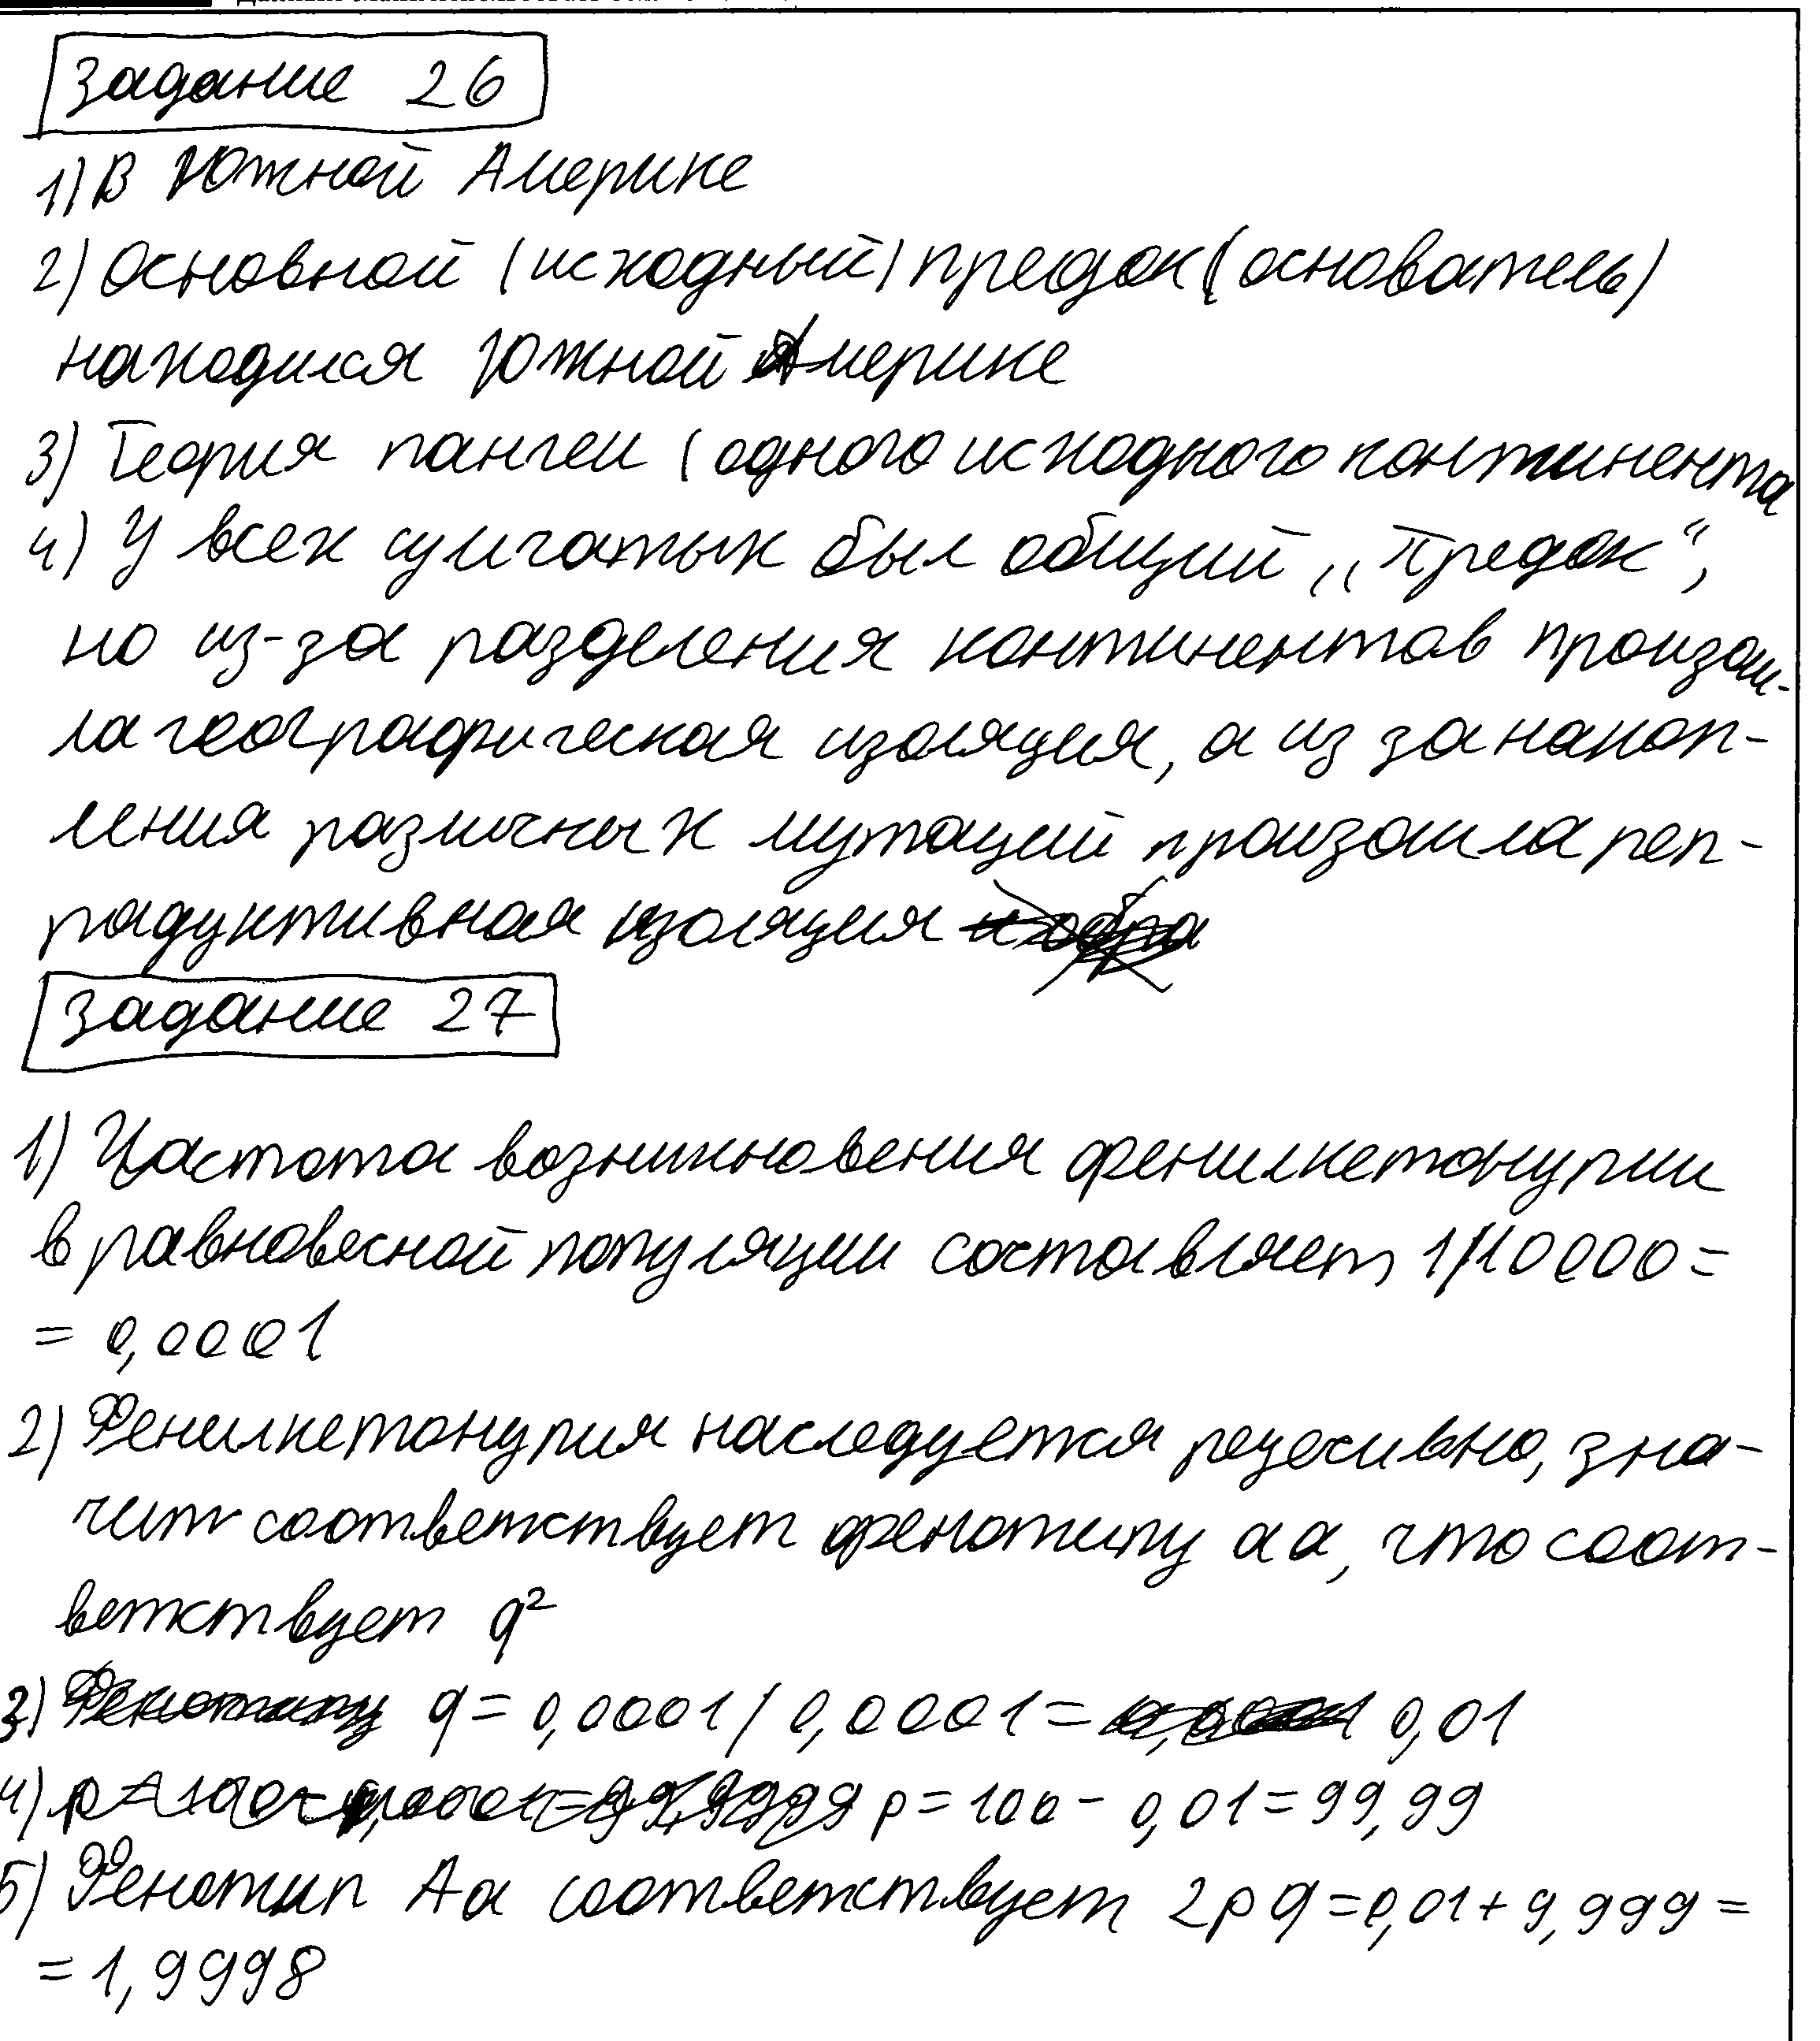 Задание 26
1) В Южной Америке
2) Основной (исходный) предок (основатель)
находился Южной Америке
3) Теория пангеи (одного исходного континента
4) У всех сумчатых был общий „Предок“,
но из-за разделения континентов произош-
ла географическая изоляция, а из за накоп-
ления различных мутаций произошла реп-
радуктивная изоляция
Задание 27
1) Частота возникновения фенилкетонурии
в равновесной популяции составляет 1/10000=
= 0,0001
2) Фенилкетонурия наследуется рецесивно, зна-
чит соответствует фенотипу аа, что соот-
ветствует q²
3) q = 0,0001 / 0,0001 = 0,01
4) p = 100 - 0,01 = 99,99
5) Фенотип Аа соответствует 2pq = 0,01 + 9,999 =
= 1,9998